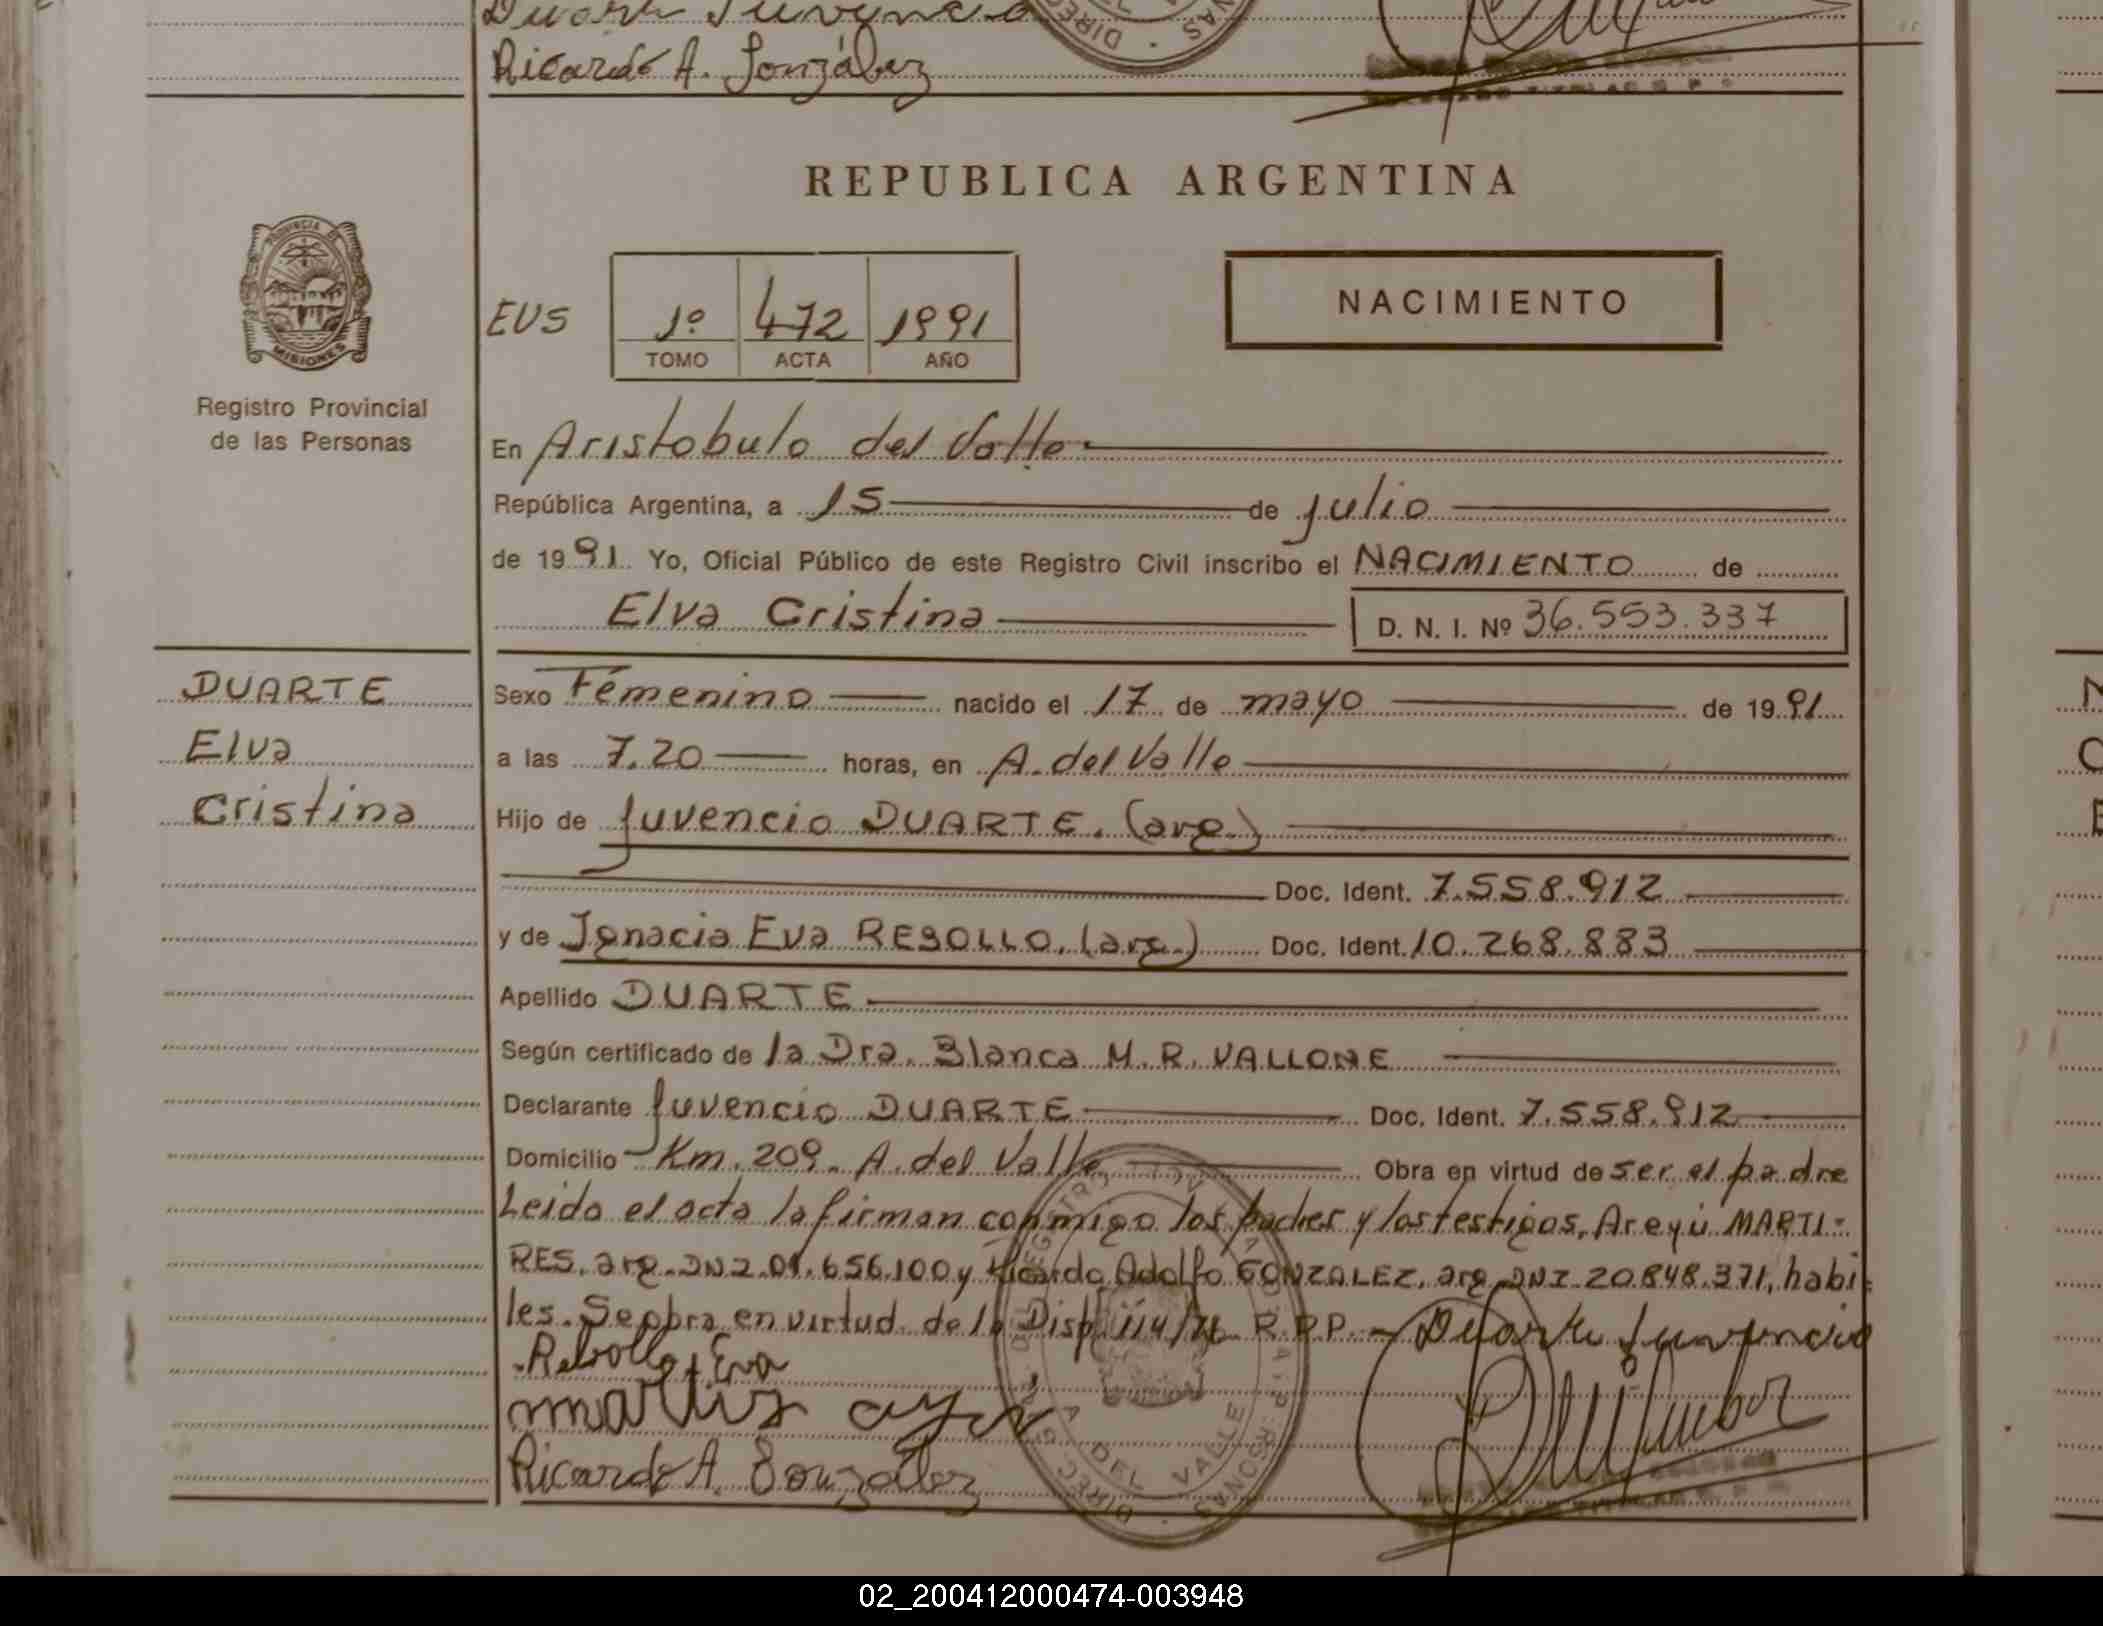 Duarte Juvencio
Ricardo A. González
REPUBLICA ARGENTINA
PROVINCIA DE
MISIONES
Registro Provincial
de las Personas
EUS
1º 472 1991
TOMO ACTA AÑO
NACIMIENTO
En Aristobulo del Valle
República Argentina, a 15 de julio
de 1991 Yo, Oficial Público de este Registro Civil inscribo el NACIMIENTO de
Elva Cristina
D. N. I. Nº 36.553.337
DUARTE
Elva
Cristina
Sexo Femenino nacido el 17 de mayo de 1991
a las 7.20 horas, en A. del Valle
Hijo de Juvencio DUARTE. (arg.)
Doc. Ident. 7.558.912
y de Ignacia Eva REBOLLO. (arg.) Doc. Ident. 10.268.883
Apellido DUARTE
Según certificado de la Dra. Blanca M. R. VALLONE
Declarante Juvencio DUARTE Doc. Ident. 7.558.912
Domicilio Km. 209. A. del Valle Obra en virtud de ser el padre
Leida el acta la firman conmigo los padres y los testigos, Areyú MARTI-
RES. arg. DNI 01.656.100 y Ricardo Adolfo GONZALEZ, arg. DNI 20.848.371, habi-
les. Se obra en virtud de la Disp. R.P.P. - Duarte Juvencio
Rebollo, Eva
Ricardo A. González
DEL VALLE
02_200412000474-003948